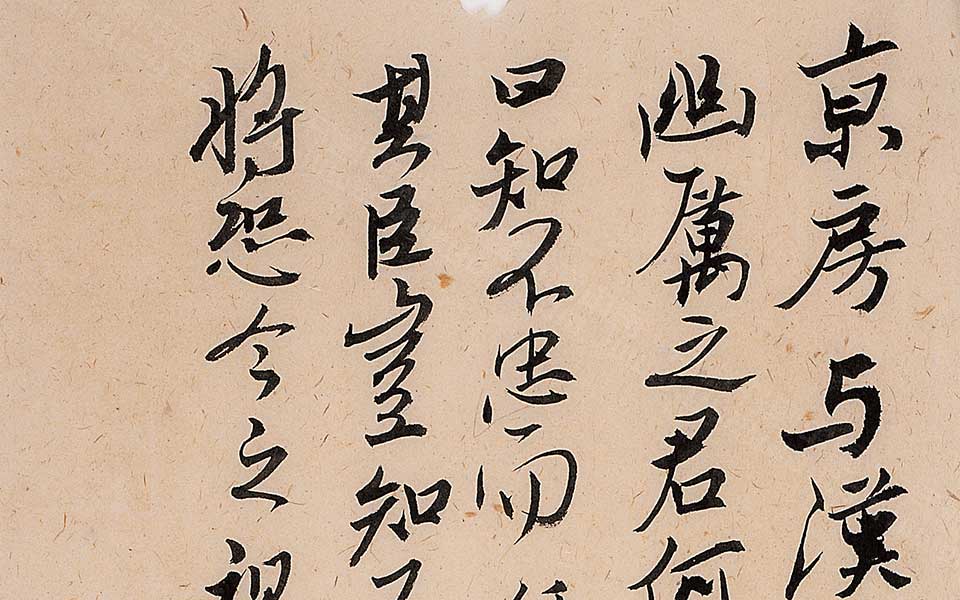 京房与漢
幽厲之君何
曰知不忠而任
其臣豈知不
將恐今之視